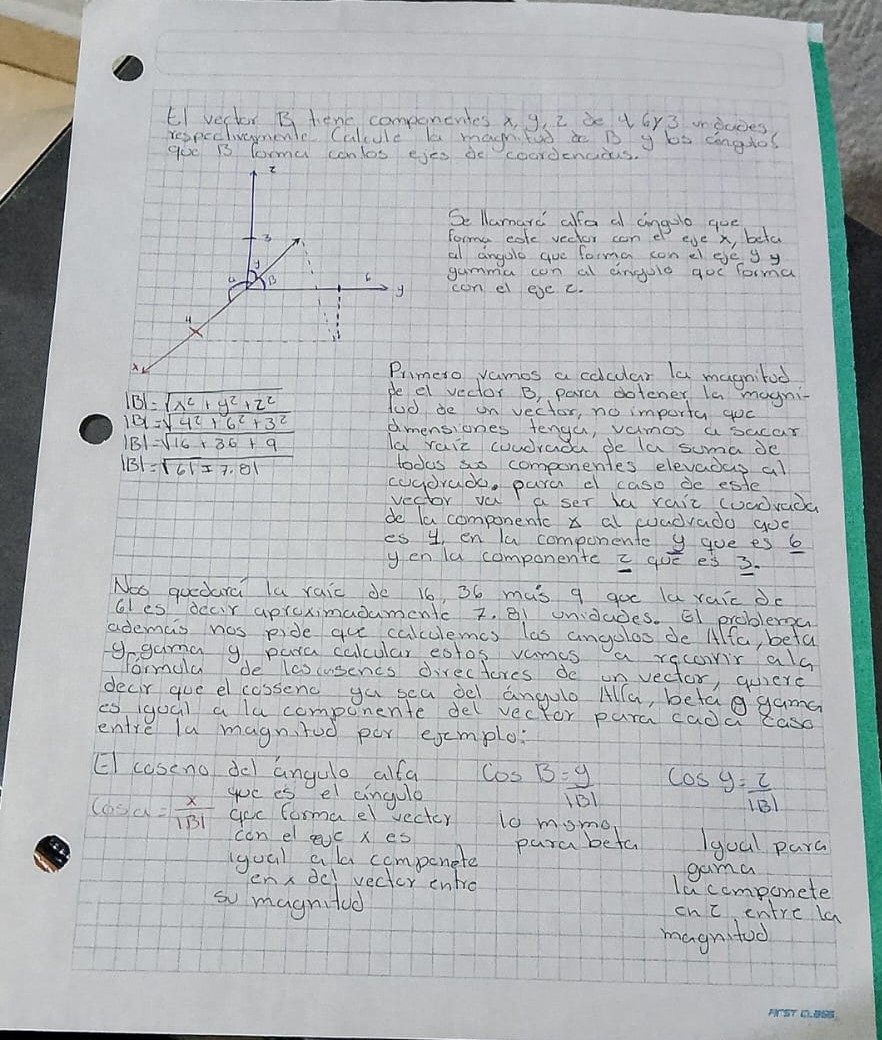 El vector B tiene componentes x, y, z de 4, 6 y 3 unidades
respectivamente. Calcule la magnitud de B y los ángulos
que B forma con los ejes de coordenadas.
z
3
Se llamará alfa al ángulo que
forma este vector con el eje x, beta
al ángulo que forma con el eje y y
gamma con al ángulo que forma
con el eje z.
y
α
B
6
y
4
x
Primero vamos a calcular la magnitud
de el vector B, para obtener la magni-
tud de un vector, no importa que
dimensiones tenga, vamos a sacar
la raíz cuadrada de la suma de
todas sus componentes elevadas al
cuadrado. para el caso de este
vector va a ser la raíz cuadrada
de la componente x al cuadrado que
es 4, en la componente y que es 6
y en la componente z que es 3.
|B|=√x²+y²+z²
|B|=√4²+6²+3²
|B|=√16+36+9
|B|=√61=7.81
Nos quedará la raíz de 16, 36 más 9 que la raíz de
61 es decir aproximadamente 7.81 unidades. El problema
además nos pide que calculemos los angulos de Alfa, beta
y gama y para calcular estos vamos a recorrir a la
formula de los cosenos directores de un vector, quiere
decir que el cosseno ya sea del ángulo Alfa, beta o gama
es igual a la componente del vector para cada caso
entre la magnitud por ejemplo:
El coseno del ángulo alfa
que es el ángulo
Cos α = x/|B| que forma el vector
con el eje x es
igual a la componete
en x del vector entre
su magnitud
Cos B = y/|B|
lo mismo
para beta
Cos y = z/|B|
Igual para
gama
la componete
en z entre la
magnitud
FIRST CLASS